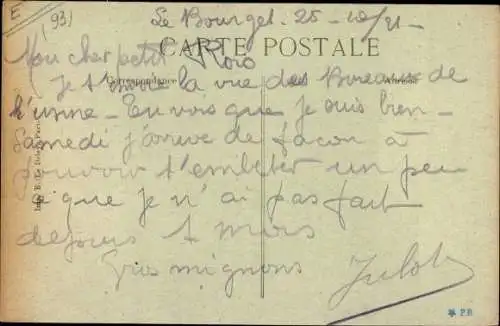 E
(93)
Le Bourget. 25-10/21-
CARTE POSTALE
Mon cher petit
Correspondance
Adresse
Je t'envoie la vue des Bureaux de
l'usine - Tu vois que je suis bien -
Samedi j'arrive de façon à
pouvoir t'embêter un peu
ce que je n'ai pas fait
depuis 1 mois
Gros mignons
★ P.B